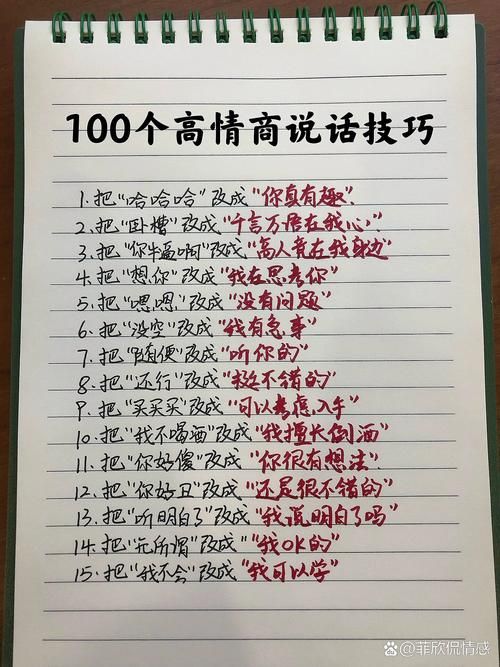 100个高情商说话技巧
1.把"哈哈哈"改成"你真有趣"
2.把"卧槽"改成"千言万语在我心"
3.把"你牛逼啊"改成"高人竟在我身边"
4.把"想你"改成"我在思考你"
5.把"嗯嗯"改成"没有问题"
6.把"没空"改成"我有急事"
7.把"随便"改成"听你的"
8.把"还行"改成"挺不错的"
9.把"买买买"改成"可以考虑入手"
10.把"我不喝酒"改成"我擅长倒酒"
11.把"你好傻"改成"你很有想法"
12.把"你好丑"改成"还是很不错的"
13.把"听明白了"改成"我说明白了吗"
14.把"无所谓"改成""我OK的"
15.把"我不会"改成"我可以学"
@菲欣侃情感